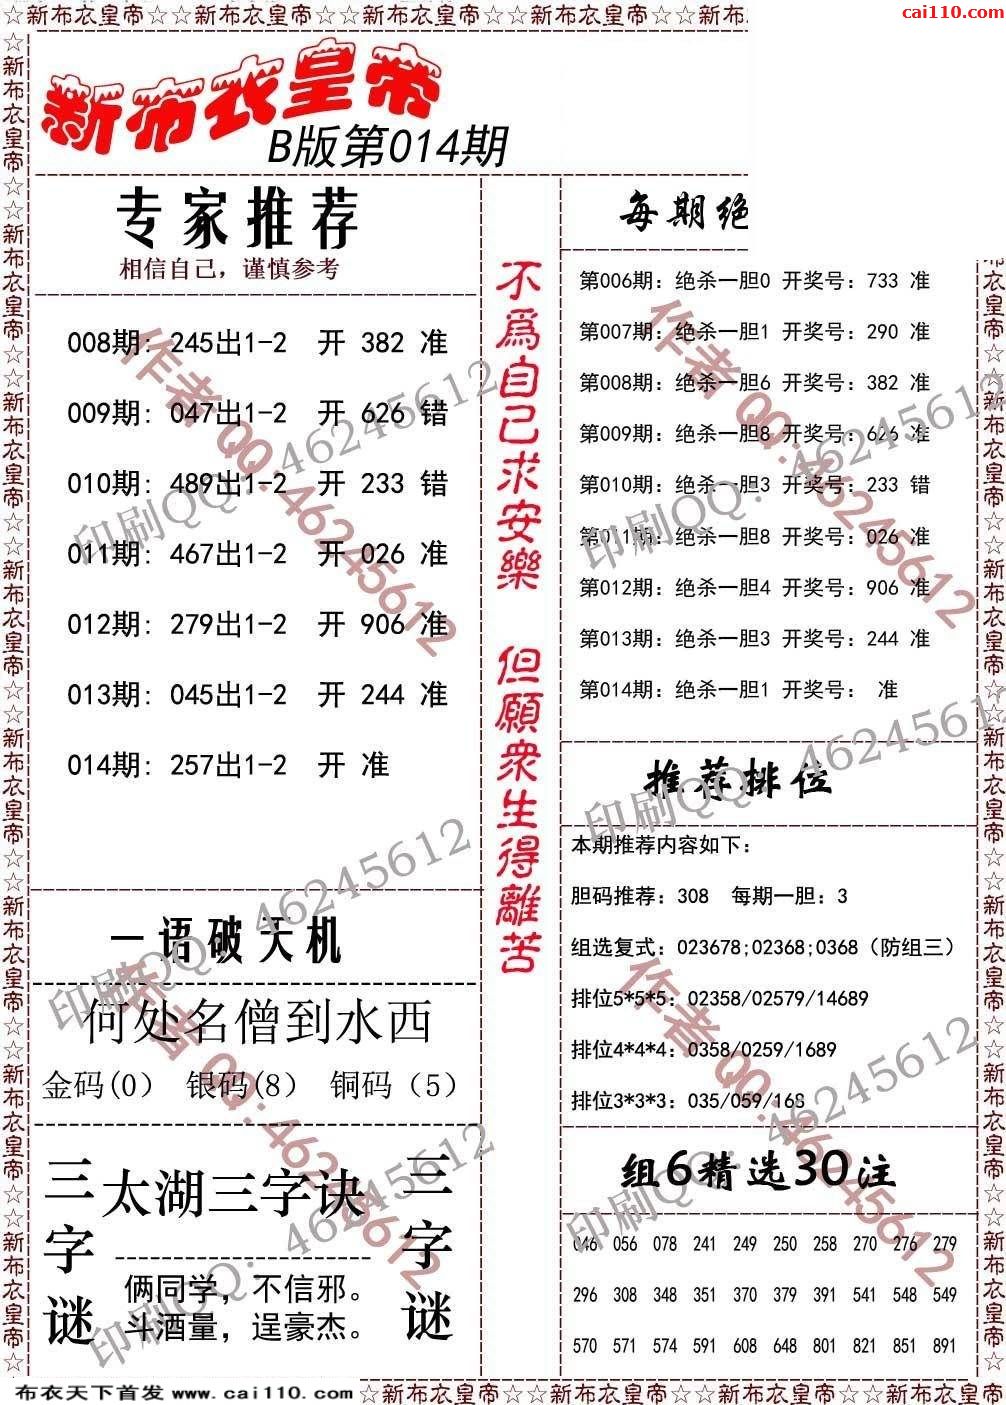 ☆新布衣皇帝☆☆新布衣皇帝☆☆新布衣皇帝☆☆新布衣皇帝☆☆新布
cai110.com
新布衣皇帝
B版第014期
专家推荐
相信自己，谨慎参考
008期: 245出1-2 开 382 准
009期: 047出1-2 开 626 错
010期: 489出1-2 开 233 错
011期: 467出1-2 开 026 准
012期: 279出1-2 开 906 准
013期: 045出1-2 开 244 准
014期: 257出1-2 开 准
一语破天机
何处名僧到水西
金码(0) 银码(8) 铜码（5）
三字谜
太湖三字诀
俩同学，不信邪。
斗酒量，逞豪杰。
三字谜
不爲自己求安樂
但願衆生得離苦
每期绝
第006期：绝杀一胆0 开奖号：733 准
第007期：绝杀一胆1 开奖号：290 准
第008期：绝杀一胆6 开奖号：382 准
第009期：绝杀一胆8 开奖号：626 准
第010期：绝杀一胆3 开奖号：233 错
第011期：绝杀一胆8 开奖号：026 准
第012期：绝杀一胆4 开奖号：906 准
第013期：绝杀一胆3 开奖号：244 准
第014期：绝杀一胆1 开奖号： 准
推荐排位
本期推荐内容如下：
胆码推荐：308 每期一胆：3
组选复式：023678;02368;0368（防组三）
排位5*5*5：02358/02579/14689
排位4*4*4：0358/0259/1689
排位3*3*3：035/059/168
组6精选30注
046 056 078 241 249 250 258 270 276 279
296 308 348 351 370 379 391 541 548 549
570 571 574 591 608 648 801 821 851 891
作者QQ:46245612
印刷QQ：46245612
布衣天下首发 www.cai110.com ☆新布衣皇帝☆☆新布衣皇帝☆☆新布衣皇帝☆☆新布衣皇帝☆